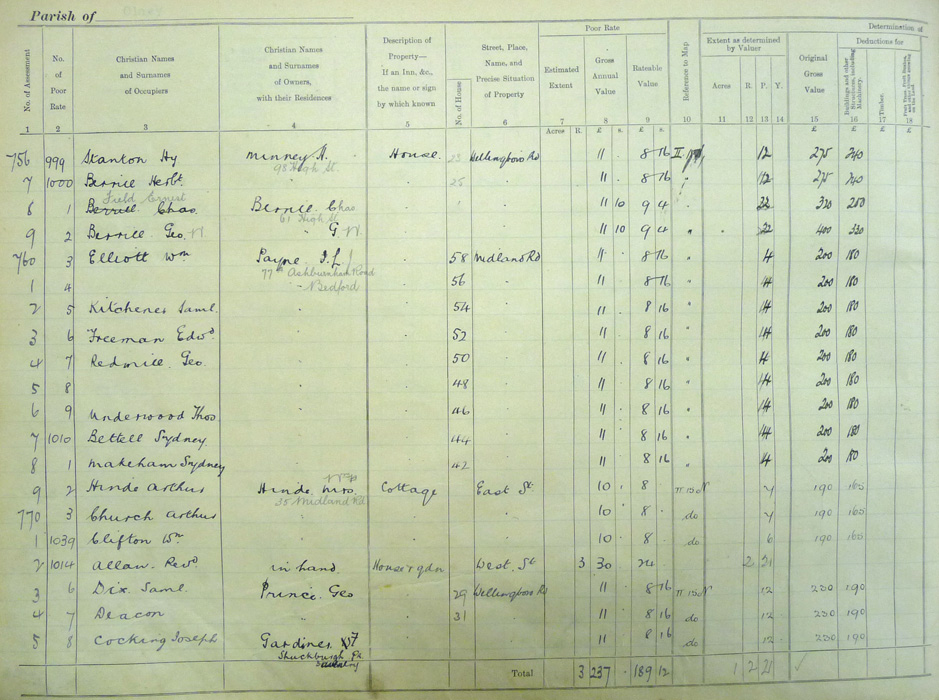 Parish of
Poor Rate
Determination of
No. of Assessment
No. of Poor Rate
Christian Names and Surnames of Occupiers
Christian Names and Surnames of Owners, with their Residences
Description of Property— If an Inn, &c., the name or sign by which known
No. of House
Street, Place, Name, and Precise Situation of Property
Estimated Extent
Gross Annual Value
Rateable Value
Reference to Map
Extent as determined by Valuer
Acres R. P. Y.
Original Gross Value
Deductions for
Buildings and other Structures, including Machinery.
Timber.
1 2 3 4 5 6 7 8 9 10 11 12 13 14 15 16 17 18
Acres R. £ s. £ s. £ £ £ £
756 999 Stanton Hy Minney H. House 23 Wellingboro Rd 11 8 16 II 12 275 240
98 High St.
7 1000 Bernie Herbt 25 11 8 16 " 12 275 240
Field Ernest
8 1 Berrill Chas. Berrill Chas 11 10 9 4 " 22 320 280
61 High St
9 2 Berrill Geo. W " G W. 11 10 9 4 " 22 400 330
760 3 Elliott Wm Payne J.f 58 Midland Rd 11 8 16 " 14 200 180
77 Ashburnham Road
1 4 Bedford 56 11 8 16 14 200 180
2 5 Kitchener Saml. 54 11 8 16 " 14 200 180
3 6 Freeman Edwd 52 11 8 16 " 14 200 180
4 7 Redmill Geo. 50 11 8 16 " 14 200 180
5 8 48 11 8 16 " 14 200 180
6 9 Underwood Thos 46 11 8 16 " 14 200 180
7 1010 Bettell Sydney 44 11 8 16 " 14 200 180
8 1 Makeham Sydney 42 11 8 16 " 14 200 180
9 2 Hinde Arthur Hinde Mrs. Cottage East St. 10 8 II 15 N 7 190 165
35 Midland Rd
770 3 Church Arthur 10 8 do 7 190 165
1 1039 Clifton Wm 10 8 do 6 190 165
2 1014 Allan Revd in hand House & gdn West St 3 30 24 2 31
3 6 Dix Saml. Prince Geo 29 Wellingboro Rd 11 8 16 II 15 N 12 230 190
4 7 Deacon 31 11 8 16 do 12 230 190
5 8 Cocking Joseph Gardiner W F 11 8 16 do 12 230 190
Shuckburgh Pk.
Total 3 237 189 12 1 2 21 ✓